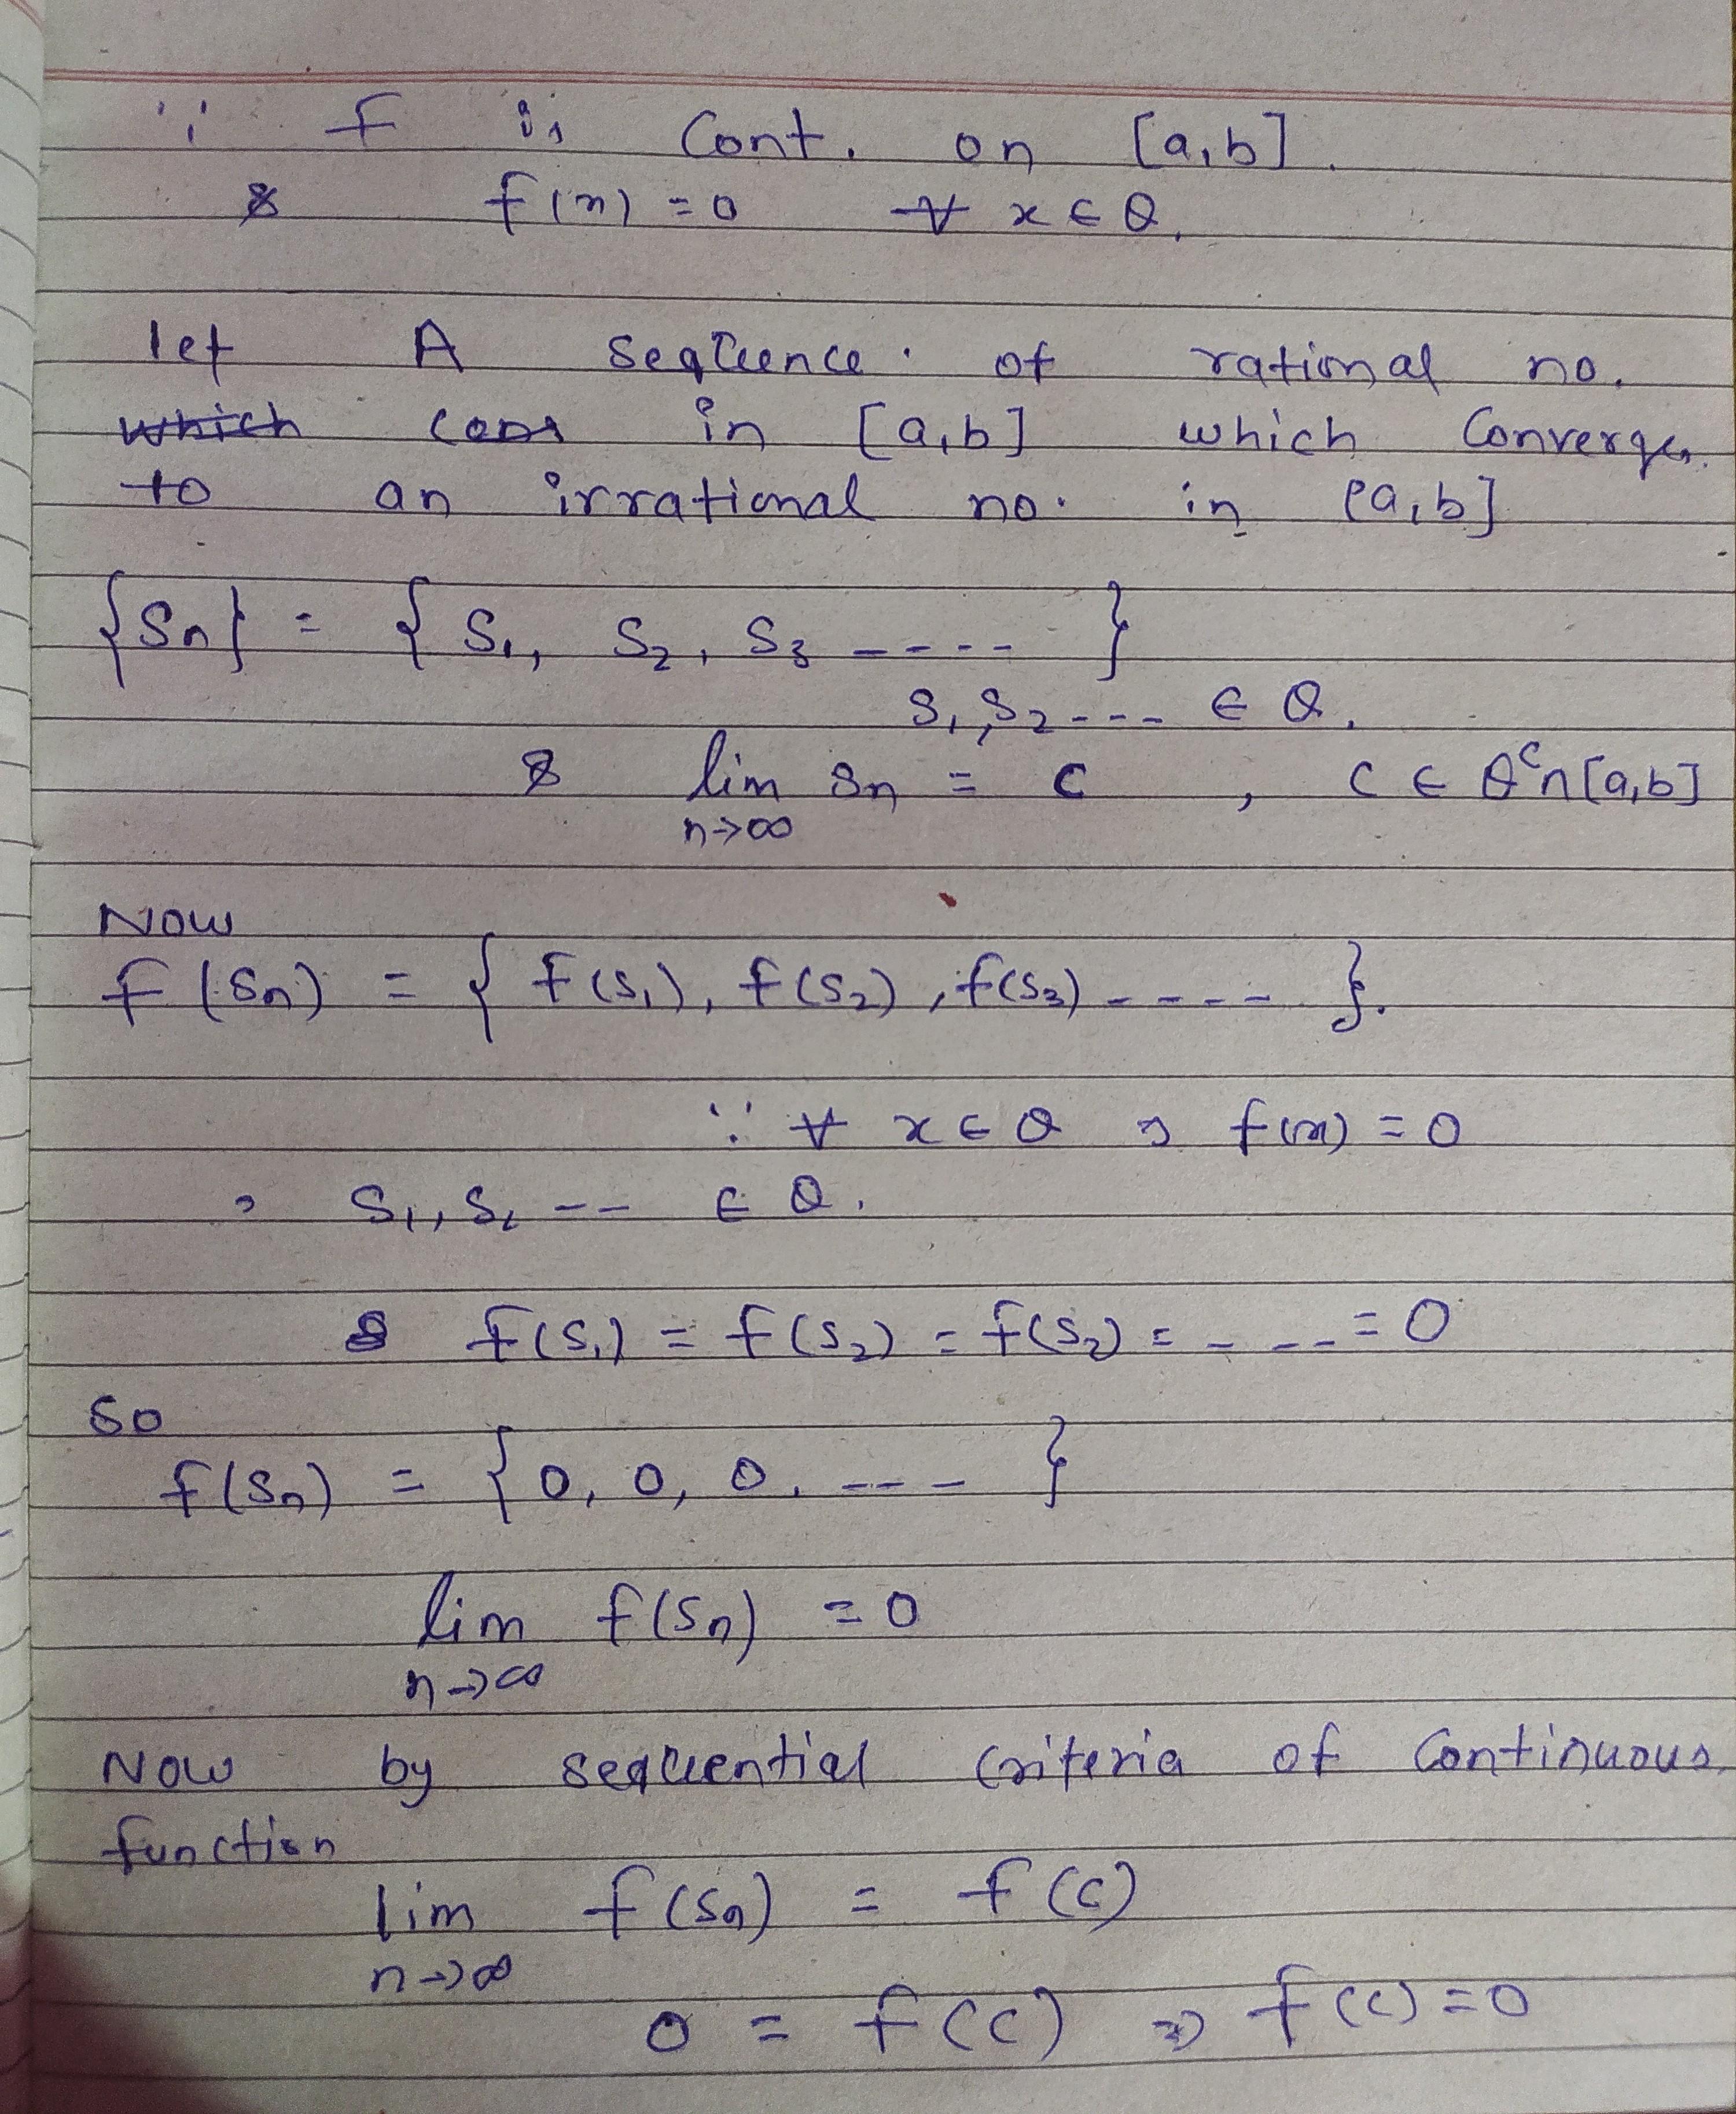 ∵ f is Cont. on [a,b].
& f(x) = 0 ∀ x ∈ Q.
let A sequence of rational no.
which cons in [a,b] which Converges
to an irrational no. in [a,b]
{Sn} = { S1, S2, S3 ---- }
S1, S2 --- ∈ Q.
& lim Sn = c , c ∈ Q^c ∩ [a,b]
n→∞
Now
f(Sn) = { f(S1), f(S2), f(S3) ---- }.
∵ ∀ x ∈ Q , f(x) = 0
, S1, S2 -- ∈ Q.
& f(S1) = f(S2) = f(S2) = - -- = 0
So
f(Sn) = { 0, 0, 0, --- }
lim f(Sn) = 0
n→∞
Now by sequential criteria of Continuous
function
lim f(Sn) = f(c)
n→∞
0 = f(c) ⇒ f(c) = 0